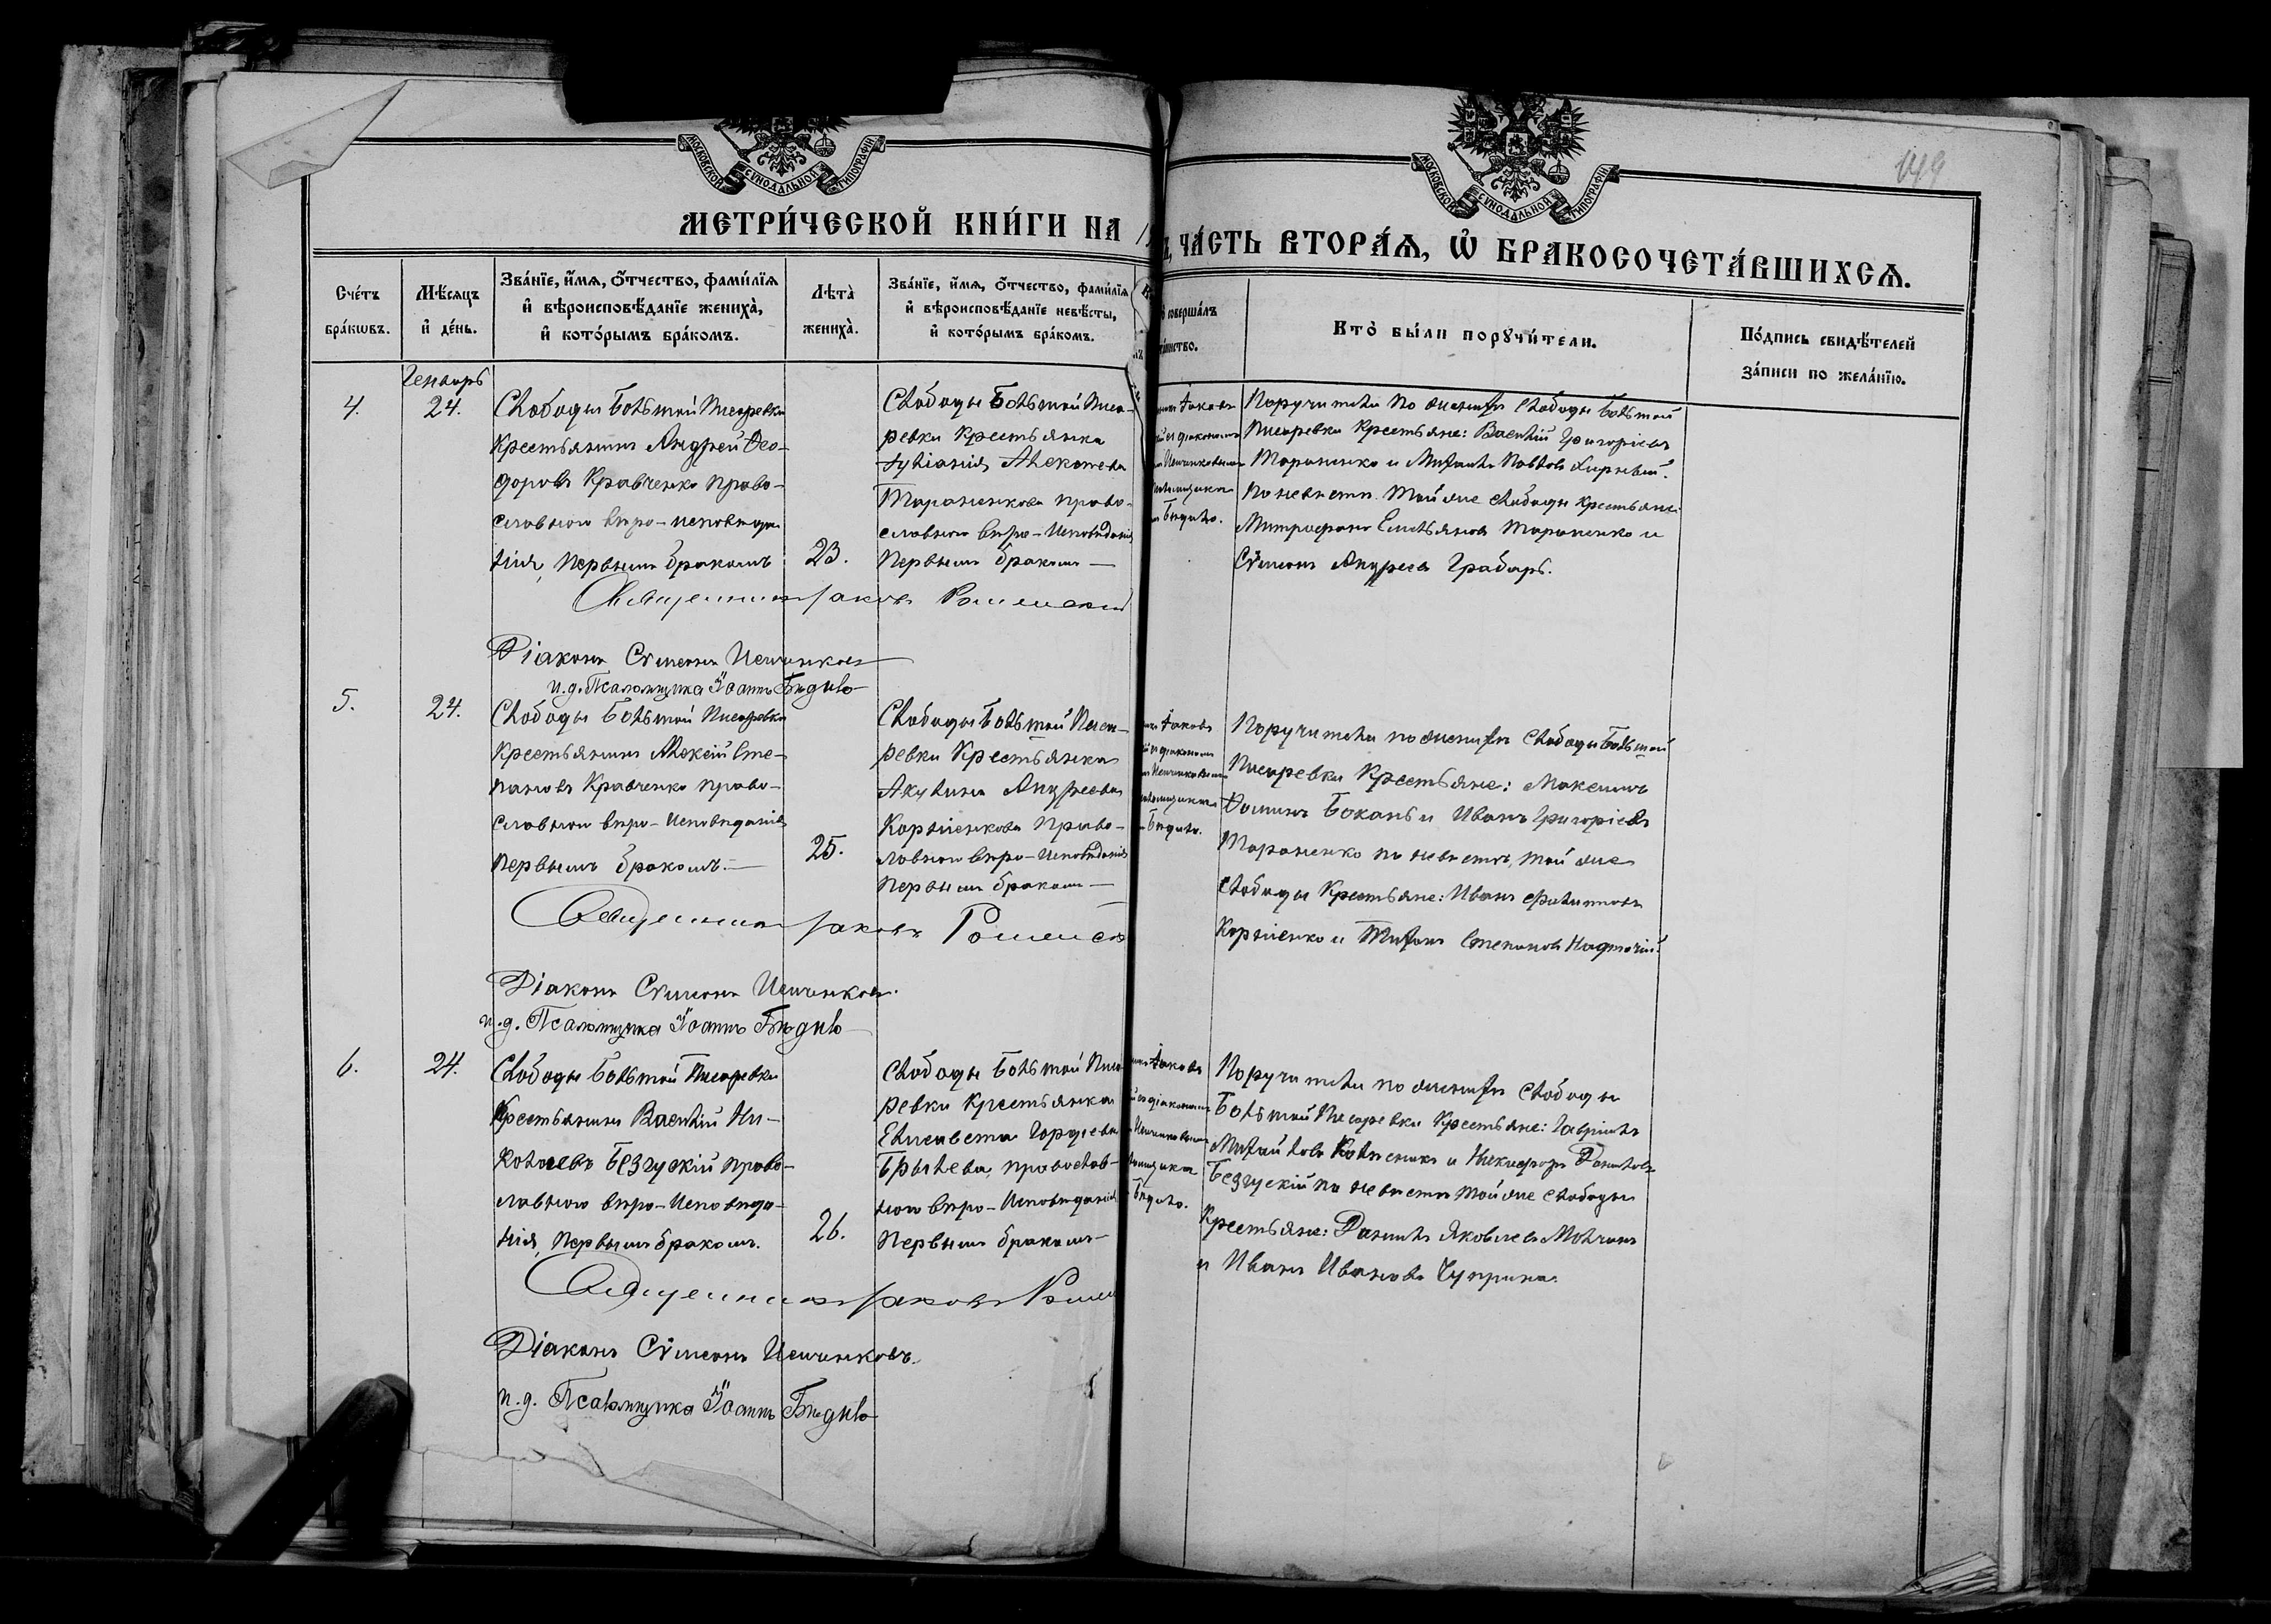 149
МОСКОВСКОЙ СѴНОДАЛЬНОЙ ТИПОГРАФІИ
МОСКОВСКОЙ СѴНОДАЛЬНОЙ ТИПОГРАФІИ
МЕТРИ́ЧЕСКОЙ КНИ́ГИ НА
ЧА́СТЬ ВТОРА́Ѧ, Ѡ҆ БРАКОСОЧЕТА́ВШИХСѦ.
Сче́тъ бра́кѡвъ.
Мѣ́сяцъ и҆ де́нь.
Зва́нїе, и҆́мѧ, о҆́тчество, фами́лїѧ
и҆ вѣроисповѣ́данїе жениха̀,
и҆ кото́рымъ бра́комъ.
Лѣта̀ жениха̀.
Зва́нїе, и҆́мѧ, о҆́тчество, фами́лїѧ
и҆ вѣроисповѣ́данїе невѣ́сты,
и҆ кото́рымъ бра́комъ.
соверша́лъ
Кто̀ бы́ли порꙋчи́тели.
По́дпись свидѣ́телей
за́писи по жела́нїю.
Генварь
4.
24.
Слободы Большой Писаревки
Крестьянинъ Андрей Ѳео-
доровъ Кравченко право-
славнаго вѣро-исповѣда
нія, первымъ бракомъ
23.
Слободы Большой Писа-
ревки Крестьянка
Іуліанія Алексѣева
Тараненкова право-
славнаго вѣро-Исповѣданія
первымъ бракомъ
Іаковъ
діакономъ
Бѣдило.
Поручители по женихѣ Слободы Большой
Писаревки Крестьяне: Василій Григорьевъ
Тараненко и Михаилъ Павловъ
По невѣстѣ той же слободы крестьяне
Митрофанъ Емельяновъ Тараненко и
Сѵмеонъ Андреевъ Грабарь.
Священникъ Іаковъ
Діаконъ Сѵмеонъ Иещенковъ
и.д. Псаломщика Іоаннъ Бѣдило
5.
24.
Слободы Большой Писаревки
Крестьянинъ Алексій Сте-
пановъ Кравченко право-
славнаго вѣро-Исповѣданія
первымъ бракомъ.
25.
Слободы Большой Писа-
ревки Крестьянка
Акулина Андреева
Корніенкова право-
лавнаго вѣро-Исповѣданія
первымъ бракомъ
Іаковъ
діакономъ
Бѣдило.
Поручители по женихѣ Слободы Большой
Писаревки Крестьяне: Максимъ
Ѳоминъ Бокань и Иванъ Григорьевъ
Тараненко по невѣстѣ, той же
слободы Крестьяне: Иванъ Филипповъ
Корніенко и Тихонъ Степановъ
Священникъ Іаковъ
Діаконъ Сѵмеонъ Иещенковъ.
и.д. Псаломщика Іоаннъ Бѣдило
6.
24.
Слободы Большой Писаревки
Крестьянинъ Василій Ни-
колаевъ Безускій право-
лавнаго вѣро-Исповѣда-
нія, Первымъ бракомъ.
26.
Слободы Большой Писа
ревки Крестьянка
Елисавета Гордѣева
православ-
наго вѣро-Исповѣданія
первымъ бракомъ
Іаковъ
діакономъ
Бѣдило.
Поручители по женихѣ Слободы
Большой Писаревки Крестьяне: Гавріилъ
Михайловъ и Никифоръ Даниловъ
Безускій по невѣстѣ той же слободы
Крестьяне: Даніилъ Яковлевъ Молчанъ
и Иванъ Ивановъ Чуприна.
Священникъ Іаковъ
Діаконъ Сѵмеонъ Иещенковъ.
и.д. Псаломщика Іоаннъ Бѣдило